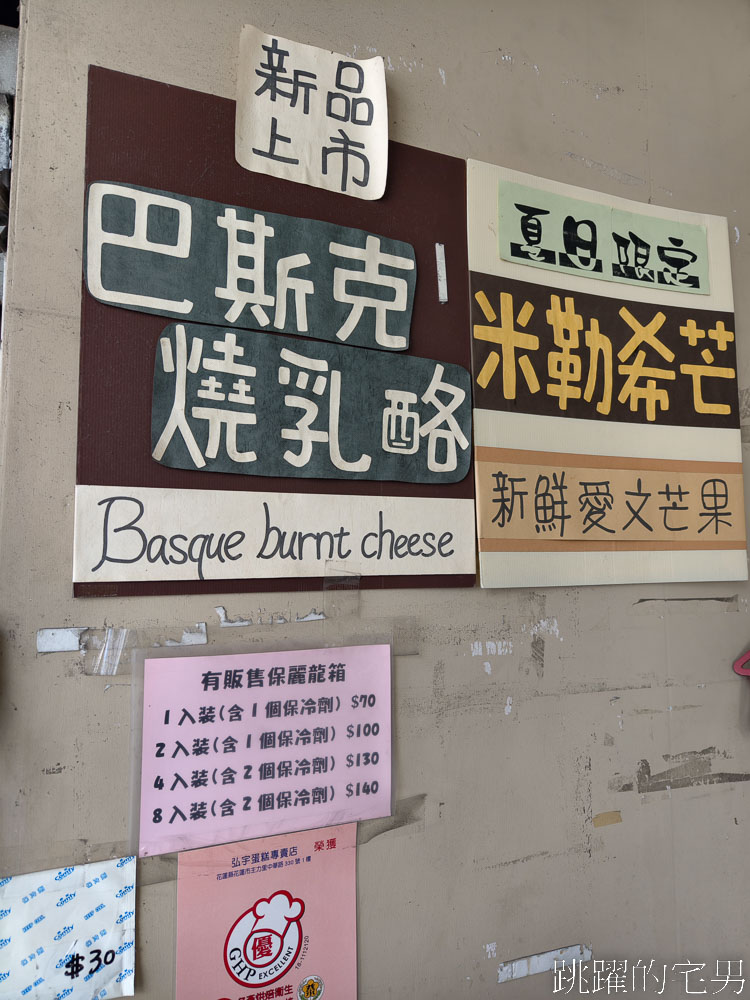 新品
上市
巴斯克
燒乳酪
Basque burnt cheese
夏日限定
米勒希芒
新鮮愛文芒果
有販售保麗龍箱
1入裝(含1個保冷劑) $70
2入裝(含1個保冷劑) $100
4入裝(含2個保冷劑) $130
8入裝(含2個保冷劑) $140
弘宇蛋糕專賣店
榮獲
優
GHP EXCELLENT
$30
跳躍的宅男